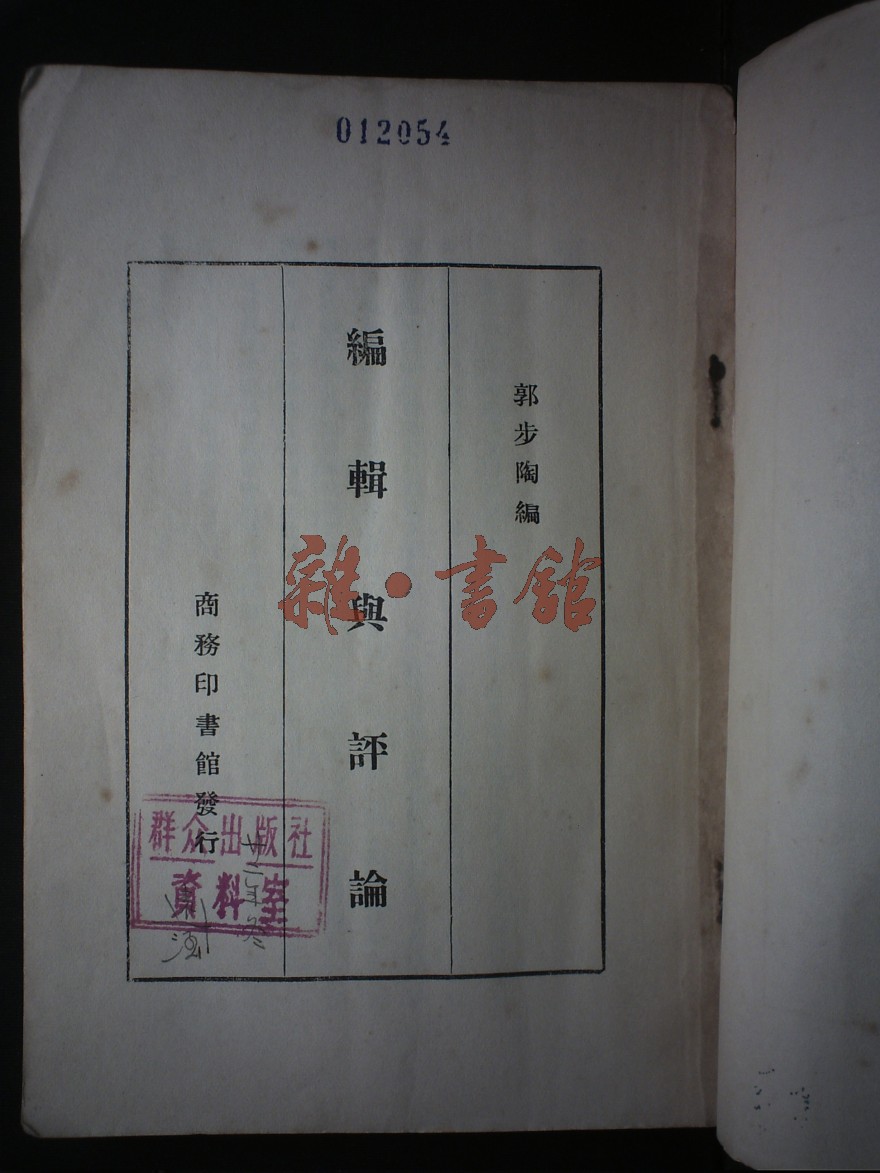 012054
郭步陶編
編輯與評論
商務印書館發行
雜·書館
群众出版社
資料室